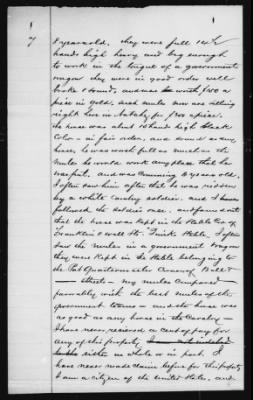 7
8 years old, they were full 14½
hands high heavy and big enough
to work in the tongue of a government
wagon they were in good order well
broke & sound, and was worth $150 a
piece in gold. Such mules now are selling
right here in Natchez for $200 apiece.
The horse was about 15 hands high black
Color - in fair order and sound in any
horse, he was worth full as much as the
mules he would work any place that he
was put. and was 4 years old.
I often saw him after that he was ridden
by a white cavalry soldier. and I have
followed the soldier once. and found out
that the horse was kept in the Stable Cor of
Franklin & wall Sts. Stable, I often
saw the mules in a government wagon
they were kept in the Stable belonging to
the Post Quartermaster Corner of
Streets - my mules compared
favorably with the best mules of the
government teams - and the horse was
as good as any horse in the Cavalry -
I have never received a cent of pay for
any of this property
either in whole or in part. I
have never made claim before for this property
I am a citizen of the United States, and